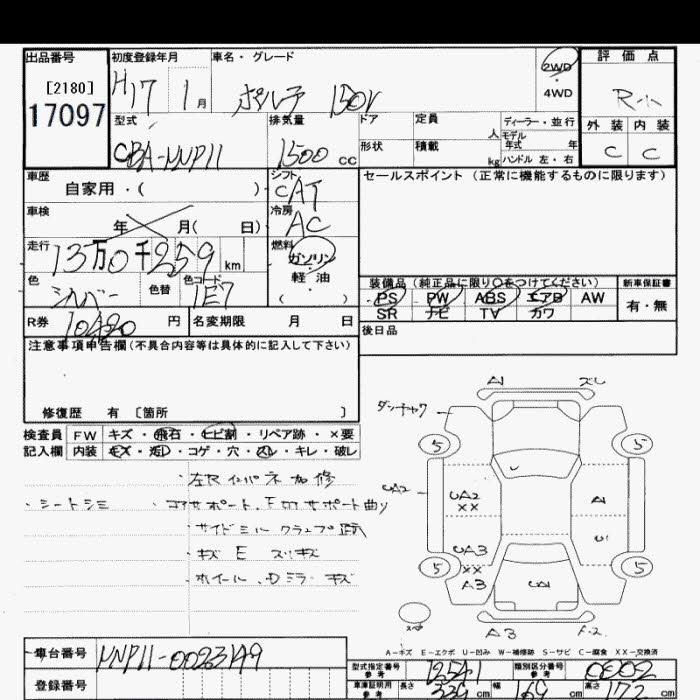 出品番号 初度登録年月 車名・グレード 2WD 評価点
[2180] H17 1月 ポルテ 150r ・4WD
17097 型式 排気量 ドア 定員 人 ディーラー・並行 外装 内装
CBA-NNP11 1500cc 形状 積載 kg モデル年式 年 C C
ハンドル 左・右
車歴 シフト セールスポイント (正常に機能するものに限ります)
自家用・( ) CAT
車検 冷房
年 月( 日) AC
走行 燃料
13万0千259km ガソリン
色 色替 色コード 軽油 装備品 (純正品に限り○をつけてください) 新車保証書
シルバー 1E7 ( ) PS PW ABS エアB AW 有・無
R券 10480円 名変期限 月 日 SR ナビ TV カワ
後日品
注意事項申告欄(不具合内容等は具体的に記入して下さい)
修復歴 有 [箇所 ]
検査員 FW キズ・飛石・ヒビ割・リペア跡・×要
記入欄 内装 キズ・汚レ・コゲ・穴・スレ・キレ・破レ
左Rインパネ加修
・シートシミ ・コアサポート、
・キズ E
・ホイール、Dミラー キズ
A1
5 5
UA2
UA2 XX A1
U1
UA3
XX
5 A3 5
UA1
A3
A-キズ E-エクボ U-凹み W-補修跡 S-サビ C-腐食 XX-交換済
車台番号 NNP11-0023149
登録番号
型式指定番号 参考 12541 類別区分番号 参考 0002
車庫証明用 参考 長さ 339cm 幅 169cm 高さ 172cm